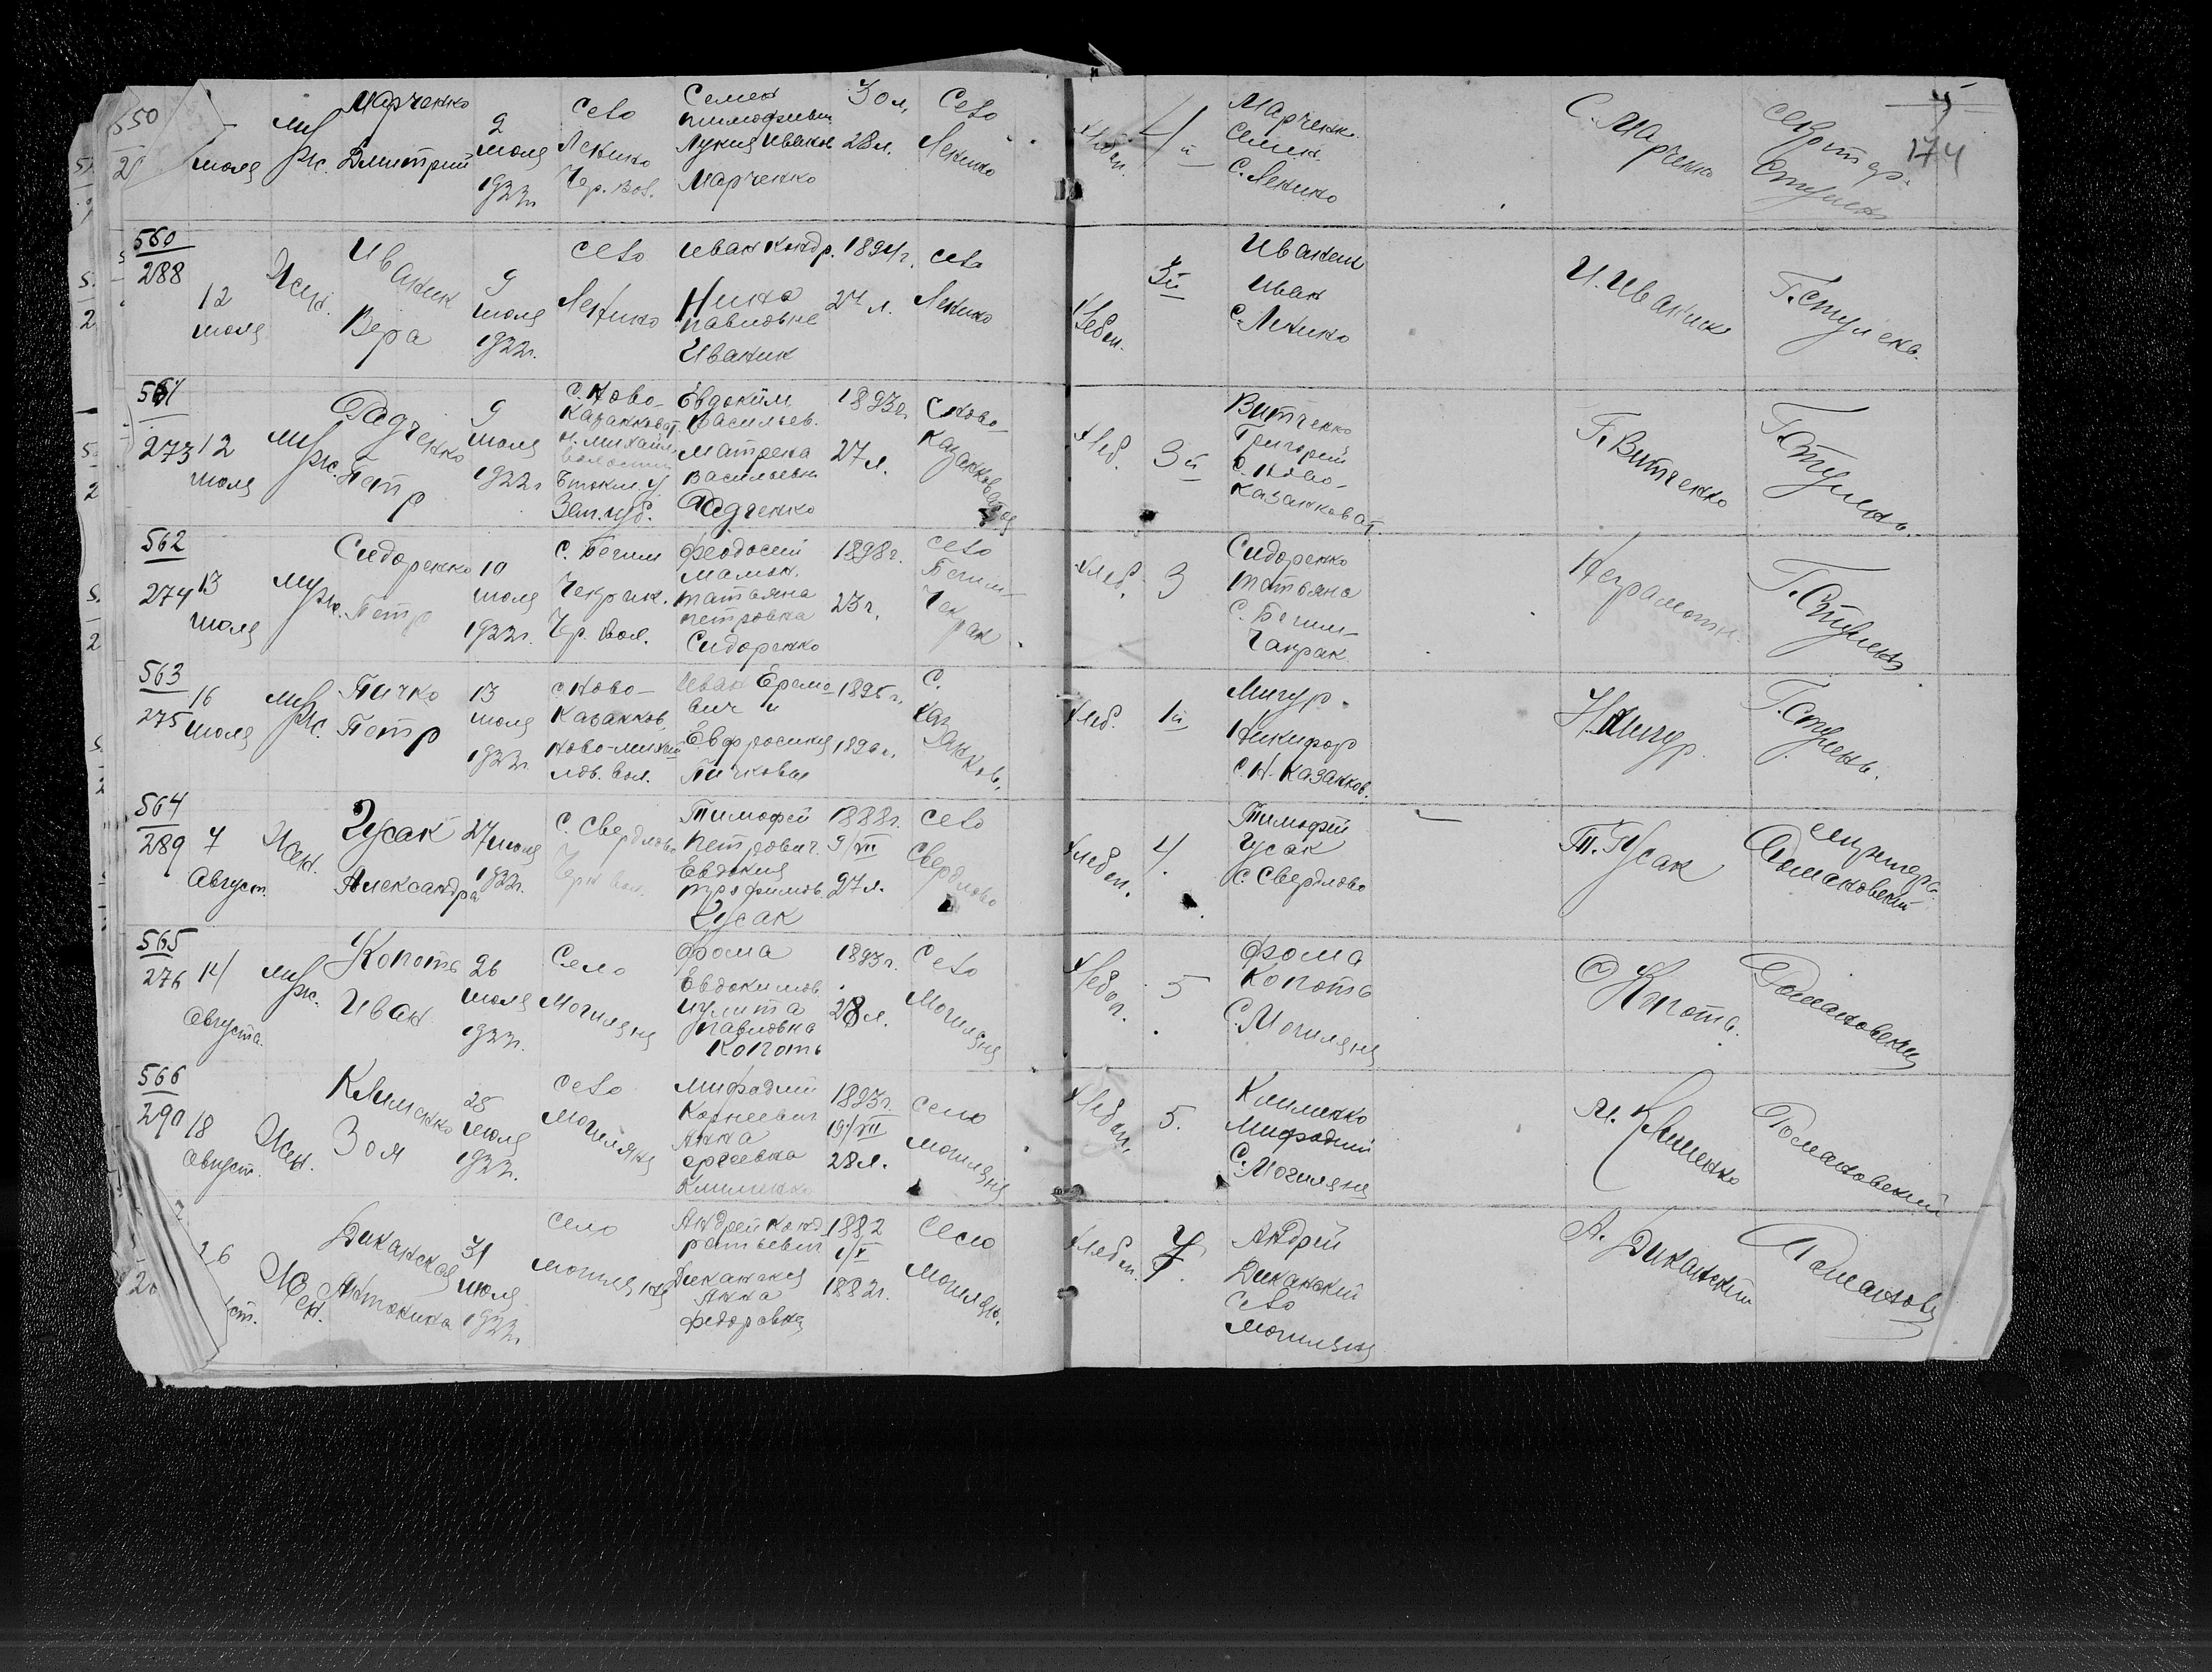 550
июля
муж.
Марченко
Дмитрий
2
июля
1922г.
село
Ленино
Чер. вол.
Семен
Тимофеевич
Лукия Иванов
Марченко
30 л.
28 л.
село
Ленино
хлебоп.
4й
Марченк.
Семен
С. Ленино
С. Марченко
секретар.
Стулень
174
560
288
12
июля
жен.
Иванин
Вера
9
июля
1922г.
село
Ленино
Иван Кондр.
Нина
Павловне
Иванин
1894г.
27 л.
село
Ленино
хлебоп.
3й
Иванин
Иван
С. Ленино
И. Иванин
Г. Стулень
561
273
12
июля
муж.
Радченко
Петр
9
июля
1922г
с. Ново-
Казанковат.
н. Михайл.
волости
Б токм. у
Зап. губ.
Евдоким
Васильев.
Матрена
Васильевна
Радченко
1893г.
27 л.
С. Ново-
Казанковатой
хлеб.
3й
Витченко
Григорий
с. Ново-
Казанковат.
Г. Витченко
Г. Стулень.
562
274
13
июля
муж.
Сидоренко
Петр
10
июля
1922г.
с. Бегим
Чекрак.
Чр. вол.
Феодосий
Мамон.
Татьяна
Петровна
Сидоренко
1898г.
23 г.
село
Бегим-
Чакрак
хлеб.
3
Сидоренко
Татьяна
С. Бегим-
Чакрак
Неграмотн.
Г. Стулень
563
275
16
июля
муж.
Пичко
Петр
13
июля
1922г.
с. Ново-
Казанков
Ново-михай
лов. вол.
Иван Ереме
вич и
Евфросиния
Пичковы
1895г.
1896г.
С.
Казанков.
хлеб.
1й
Мигур
Никифор
с. Н. Казанков.
Н. Мигур.
Г. Стулень.
564
289
7
Август.
жен.
Гусак
Александра
27
июля
1922г.
С. Свердлово
Черн вол.
Тимофей
Петрович.
Евдокия
Трофимов.
Гусак
1888г.
9/VII
27 л.
село
Свердлово
хлебоп.
4.
Тимофей
Гусак
С. Свердлово
Т. Гусак
Романовский
565
276
14
Августа.
муж.
Копоть
Иван
26
июля
1922г.
Село
Могиляны
Фома
Евдокимов.
Иулита
Павловна
Копоть
1893г.
28 л.
село
Могиляны
хлебоп.
5
Фома
Копоть
С. Могиляны
Копоть.
Романовский
566
290
18
Август.
жен.
Клименко
Зоя
28
июля
1922г.
село
Могиляны
Мифодий
Корнеевич
Анна
ергеевна
Клименко
1893г.
19/VII
28 л.
село
Могиляны
хлебоп.
5.
Клименко
Мифодий
С. Могиляны
М. Клименко
Романовский
26
ст.
жен.
Диканская
Антонина
31
июля
1922г.
село
Могиляны
Андрей Конд
ратьевич
Диканския
Анна
Федоровна
1882
1/V
1882г.
село
Могилян.
хлебоп.
7.
Андрей
Диканский
село
Могиляны
А. Диканский
Романовск